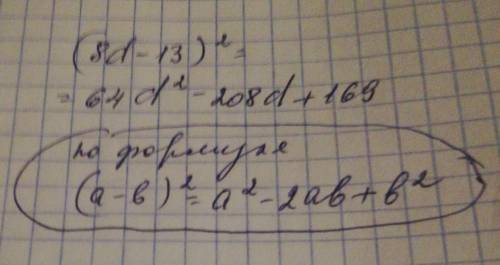 (8d-13)²=
=64d²-208d+169
по формуле
(а-в)²=а²-2ав+в²